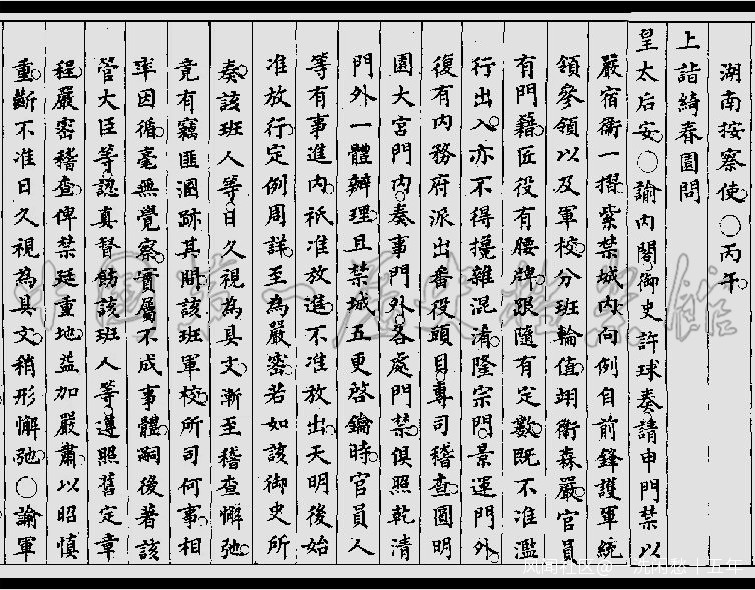 湖南按察使○丙午
上詣綺春園問
皇太后安○諭內閣御史許球奏請申門禁以
嚴宿衛一摺紫禁城內向例自前鋒護軍統
領參領以及軍校分班輪值翊衛森嚴官員
有門籍匠役有腰牌跟隨有定數既不准濫
行出入亦不得攙雜混淆隆宗門景運門外
復有內務府派出番役頭目專司稽查圓明
園大宮門內奏事門外各處門禁俱照乾清
門外一體辦理且禁城五更啓鑰時官員人
等有事進內祇准放進不准放出天明後始
准放行定例周詳至為嚴密若如該御史所
奏該班人等日久視為具文漸至稽查懈弛
竟有竊匪溷跡其間該班軍校所司何事相
率因循毫無覺察實屬不成事體嗣後著該
管大臣等認真督飭該班人等遵照舊定章
程嚴密稽查俾禁廷重地益加嚴肅以昭慎
重斷不准日久視為具文稍形懈弛○諭軍
中國第一歷史檔案館